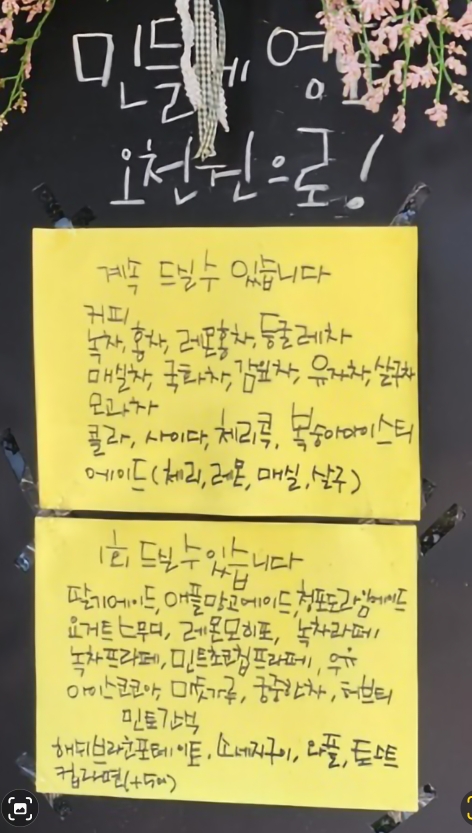 민들레 영토
오천원으로!
계속 드실수 있습니다
커피
녹차, 홍차, 레몬홍차, 둥굴레차
매실차, 국화차, 감잎차, 유자차, 살구차
모과차
콜라, 사이다, 체리콕, 복숭아아이스티
에이드(체리, 레몬, 매실, 살구)
1회 드실수 있습니다
딸기에이드, 애플망고에이드, 청포도라임에이드
요거트스무디, 레몬모히또, 녹차라떼
녹차프라페, 민트초코칩프라페, 우유
아이스코코아, 미숫가루, 궁중한차, 허브티
민토간식
해쉬브라운포테이토, 소세지구이, 와플, 토스트
컵라면(+500)